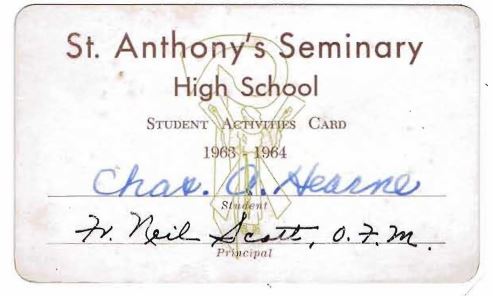 St. Anthony's Seminary
High School
STUDENT ACTIVITIES CARD
1963 - 1964
Chas. A. Hearne
Student
Fr. Neil Scott, O.F.M.
Principal